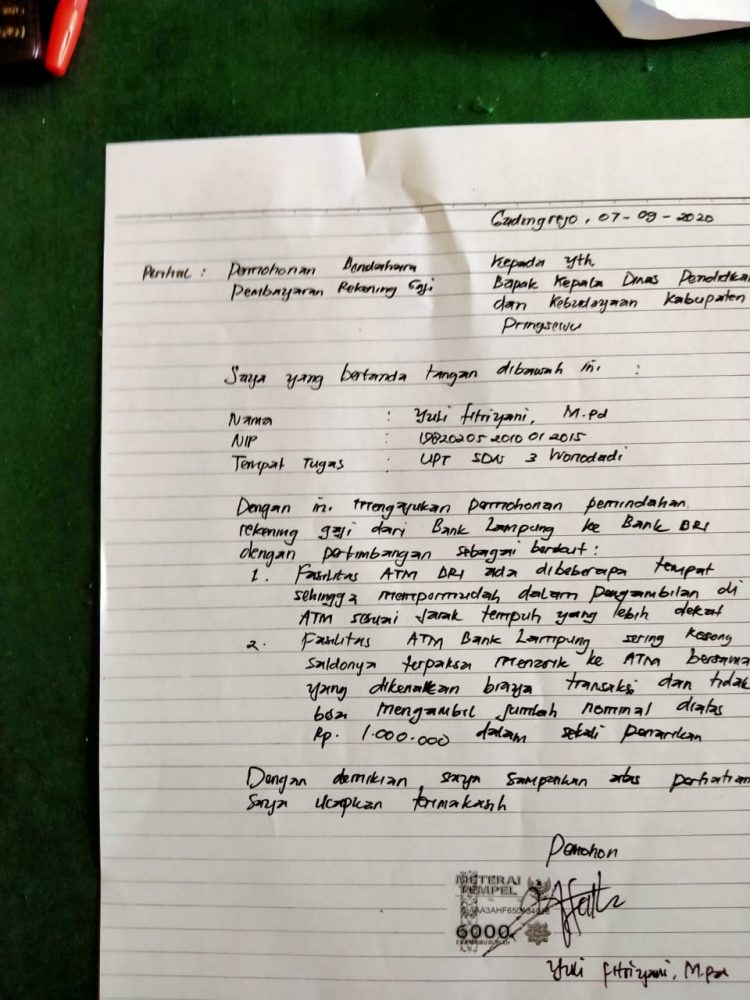 Gadingrejo, 07-09-2020
Perihal : Permohonan Bendahara
Pembayaran Rekening Gaji
Kepada Yth
Bapak Kepala Dinas Pendidikan
dan Kebudayaan Kabupaten
Pringsewu
Saya yang bertanda tangan dibawah ini :
Nama : Yuli Fitriyani, M.Pd
NIP : 19820205 2010 01 2015
Tempat Tugas : UPT SDN 3 Wonodadi
Dengan ini mengajukan permohonan pemindahan
rekening gaji dari Bank Lampung ke Bank BRI
dengan pertimbangan sebagai berikut :
1. Fasilitas ATM BRI ada dibeberapa tempat
sehingga mempermudah dalam pengambilan di
ATM sesuai jarak tempuh yang lebih dekat
2. Fasilitas ATM Bank Lampung sering kosong
saldonya terpaksa menarik ke ATM bersama
yang dikenakan biaya transaksi dan tidak
bisa mengambil jumlah nominal diatas
Rp. 1.000.000 dalam sekali penarikan
Dengan demikian saya sampaikan atas perhatian
saya ucapkan terimakasih
Pemohon
METERAI
TEMPEL
6000
ENAM RIBU RUPIAH
Yuli Fitriyani, M.Pd